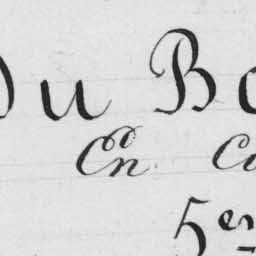 du Bo
En Ca
5er